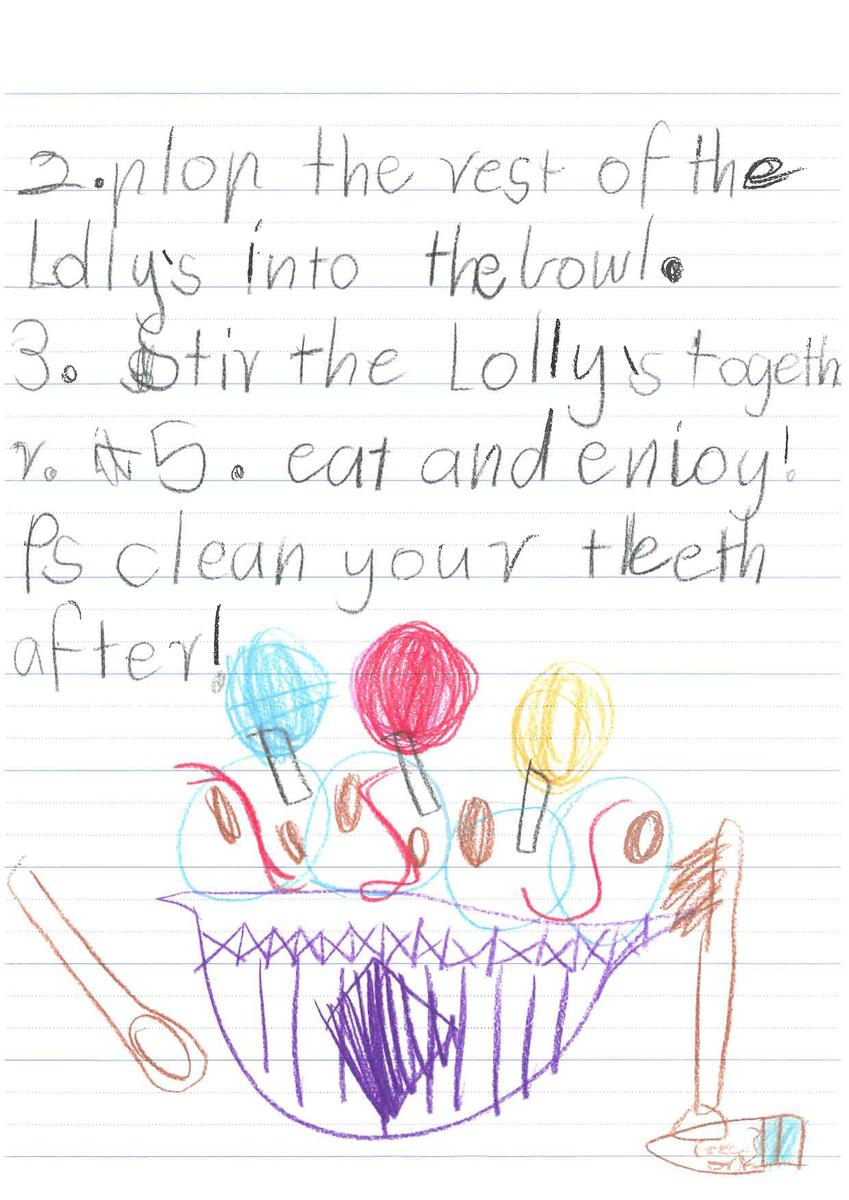 2. plop the rest of the
Lolly's into the bowl.
3. Stir the Lolly's togeth
r. 5. eat and enjoy!
Ps clean your teeth
after!